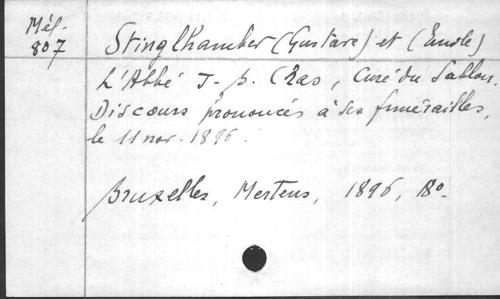 Mél.
807
Stinglhamber (Gustave) et (Emile)
L'Abbé J-B. Cras, Curé du Sablon.
Discours prononcés à ses funérailles,
le 11 nov. 1896.
Bruxelles, Mertens, 1896, 8o.